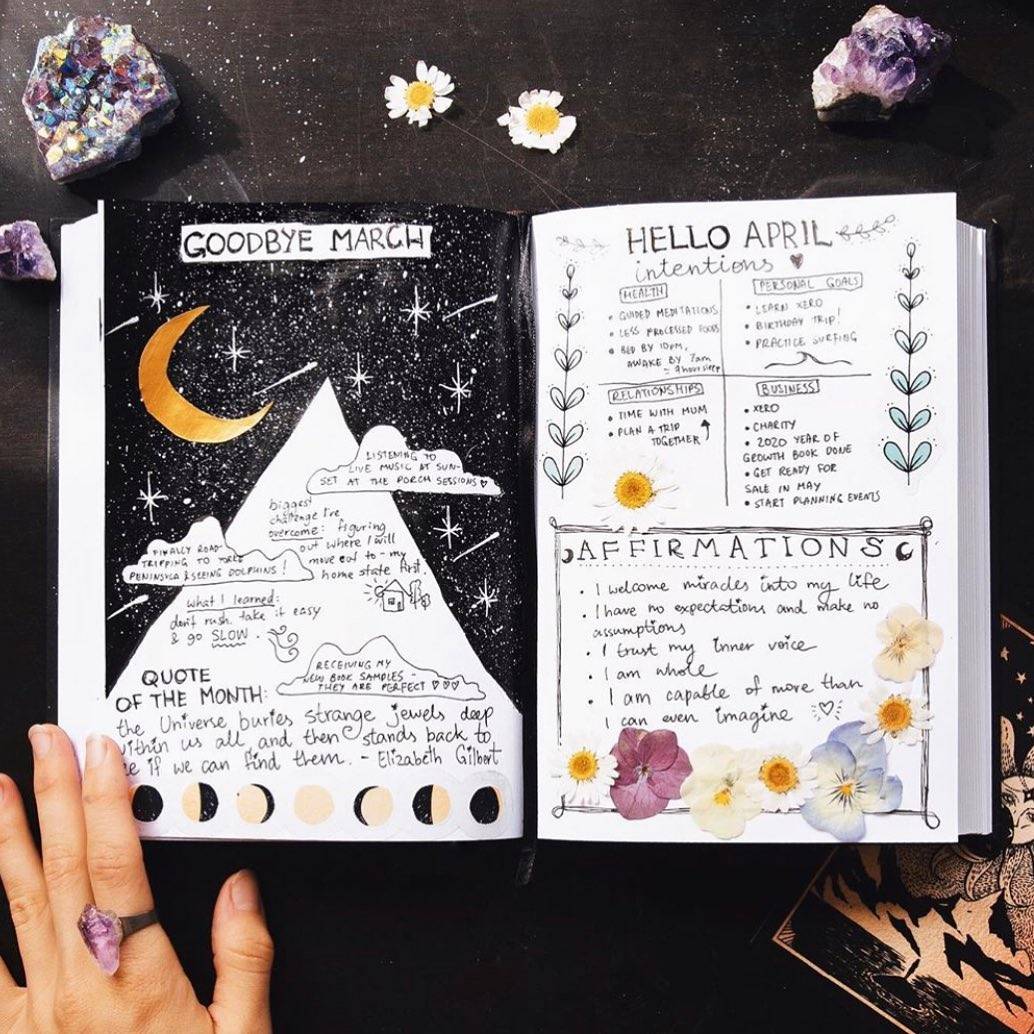 GOODBYE MARCH
LISTENING TO
LIVE MUSIC AT SUN-
SET AT THE PORCH SESSIONS
biggest
challenge I've
overcome: figuring
out where I will
move out to - my
home state first.
FINALLY ROAD-
TRIPPING TO YORKE
PENINSULA & SEEING DOLPHINS!
what I learned:
don't rush. take it easy
& go SLOW.
RECEIVING MY
NEW BOOK SAMPLES -
THEY ARE PERFECT
QUOTE
OF THE MONTH:
the Universe buries strange jewels deep
within us all and then stands back to
if we can find them. - Elizabeth Gilbert
HELLO APRIL
intentions
HEALTH
• GUIDED MEDITATIONS
• LESS PROCESSED FOODS
• BED BY 10PM,
AWAKE BY 7am
= 9 hour sleep
PERSONAL GOALS
• LEARN XERO
• BIRTHDAY TRIP!
• PRACTICE SURFING
RELATIONSHIPS
• TIME WITH MUM
• PLAN A TRIP
TOGETHER
BUSINESS
• XERO
• CHARITY
• 2020 YEAR OF
GROWTH BOOK DONE
• GET READY FOR
SALE IN MAY
• START PLANNING EVENTS
AFFIRMATIONS
• I welcome miracles into my life
• I have no expectations and make no
assumptions
• I trust my inner voice
• I am whole
• I am capable of more than
I can even imagine